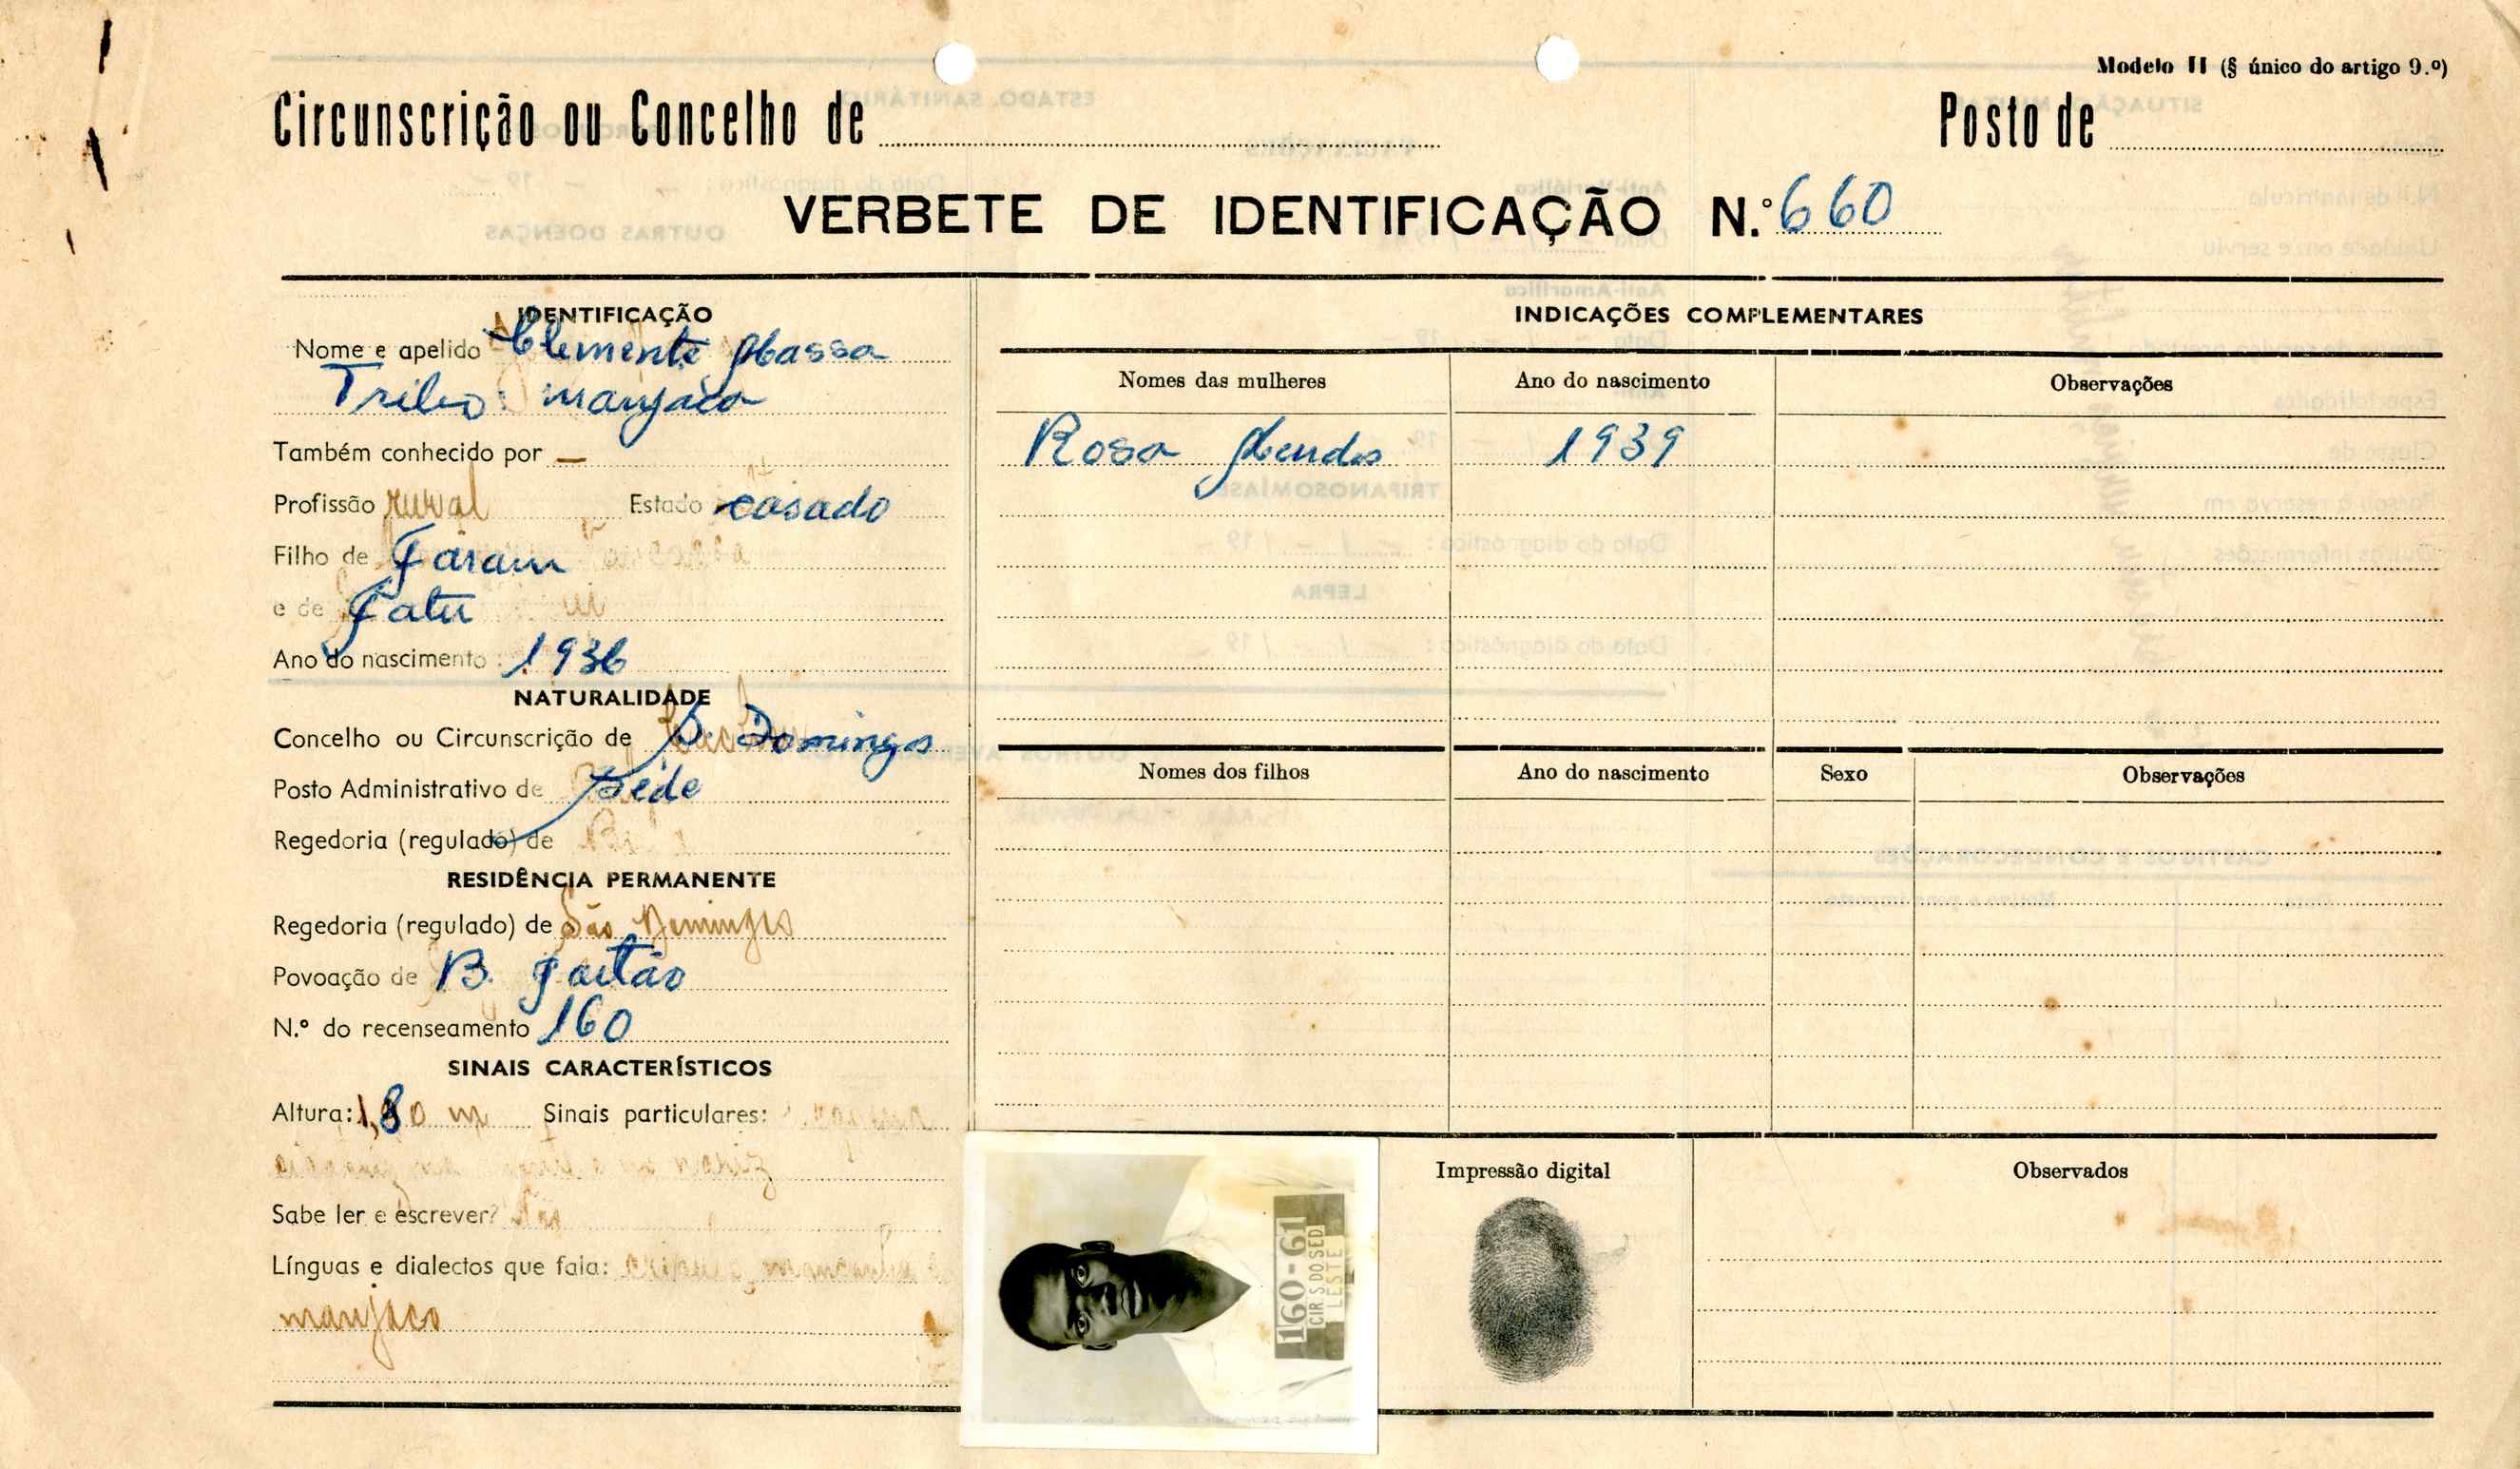 Modelo II (§ único do artigo 9.º)
Circunscrição ou Concelho de
Posto de
VERBETE DE IDENTIFICAÇÃO N.º 660
IDENTIFICAÇÃO
Nome e apelido Clemente Massa
Tribo: manjaca
Também conhecido por —
Profissão rural Estado casado
Filho de Faram
e de Fatu
Ano do nascimento : 1936
NATURALIDADE
Concelho ou Circunscrição de S. Domingos
Posto Administrativo de Séde
Regedoria (regulado) de
RESIDÊNCIA PERMANENTE
Regedoria (regulado) de São Domingos
Povoação de B.
N.º do recenseamento 160
SINAIS CARACTERÍSTICOS
Altura: 1,80 m Sinais particulares:
nariz
Sabe ler e escrever?
Línguas e dialectos que fala:
manjaco
INDICAÇÕES COMPLEMENTARES
Nomes das mulheres Ano do nascimento Observações
Rosa Mendes 1939
Nomes dos filhos Ano do nascimento Sexo Observações
160-61
CIR.S.DO SED
LESTE
Impressão digital
Observados